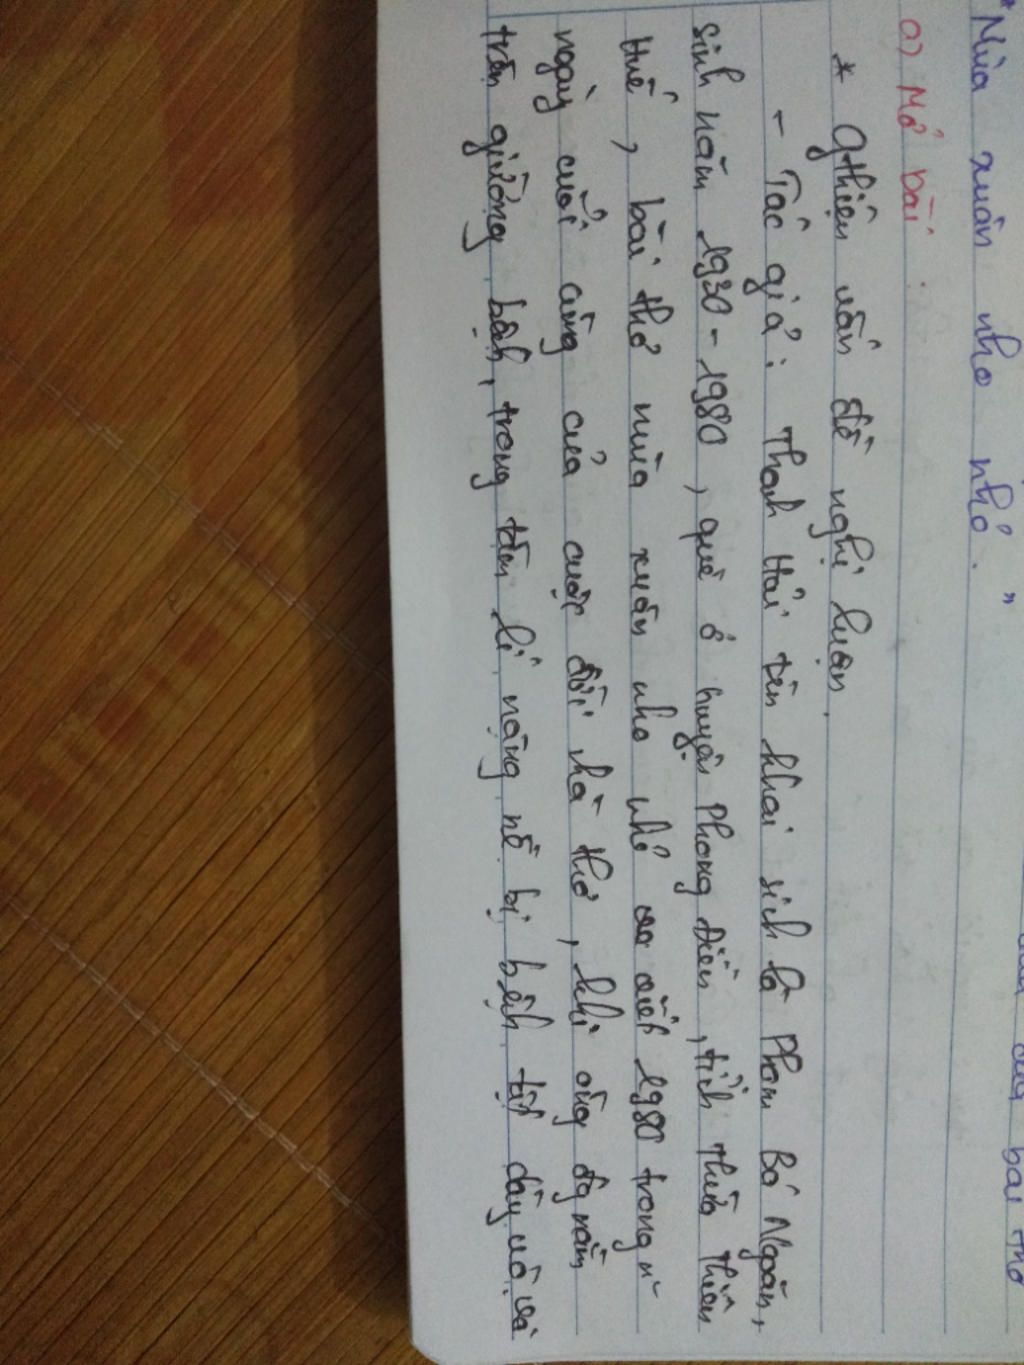 bài thơ
"Mùa xuân nho nhỏ."
a) Mở bài:
* Gthiệu vấn đề nghị luận.
- Tác giả: Thanh Hải tên khai sinh là Phạm Bá Ngoãn,
sinh năm 1930-1980, quê ở huyện Phong Điền, tỉnh Thừa Thiên
Huế, bài thơ mùa xuân nho nhỏ viết 1980 trong n~
ngày cuối cùng của cuộc đời nhà thơ, khi ông đg nằm
trên giường bệnh, trong tâm lí nặng nề bị bệnh tật dày vò và